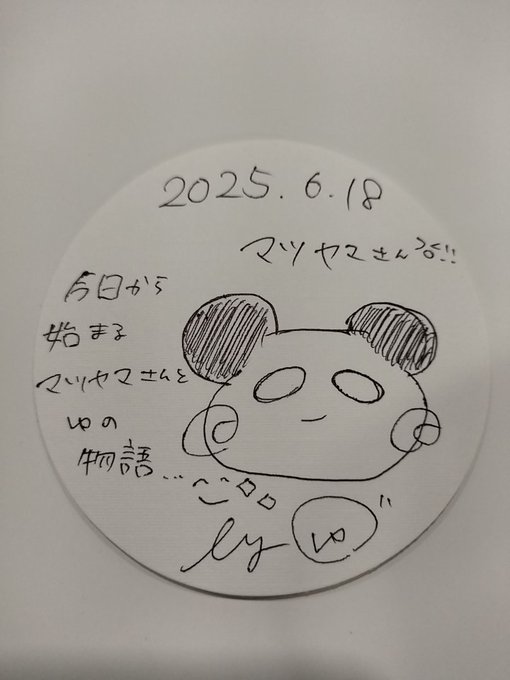 2025.6.18
マツヤマさん江!!
今日から
始まる
マツヤマさんと
ゆの
物語...
by ゆ"